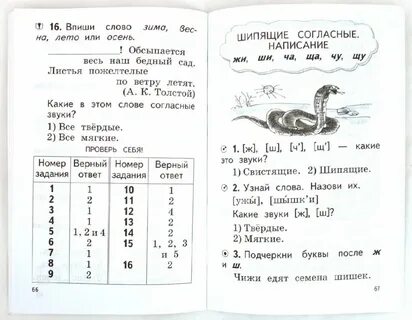 16. Впиши слово зима, вес-
на, лето или осень.
! Обсыпается
весь наш бедный сад.
Листья пожелтелые
по ветру летят.
(А. К. Толстой)
Какие в этом слове согласные
звуки?
1) Все твёрдые.
2) Все мягкие.
ПРОВЕРЬ СЕБЯ!
Номер задания Верный ответ Номер задания Верный ответ
1 1 10 1
2 2 11 2
3 1 12 4
4 2 13 2
5 1, 2 и 4 14 2
6 2 15 1, 2, 3
7 1 и 5
8 1 16 2
9 2
66
ШИПЯЩИЕ СОГЛАСНЫЕ.
НАПИСАНИЕ
жи, ши, ча, ща, чу, щу
1. [ж], [ш], [ч'], [щ'] — какие
это звуки?
1) Свистящие. 2) Шипящие.
2. Узнай слова. Назови их.
[ужы], [шышк'и]
Какие звуки [ж], [ш]?
1) Твёрдые.
2) Мягкие.
3. Подчеркни буквы после ж
и ш.
Чижи едят семена шишек.
67